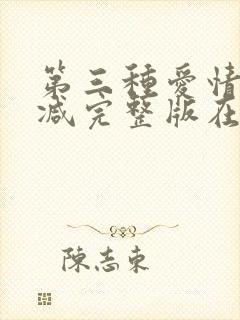 第三種愛情
减完整版在
陳志東